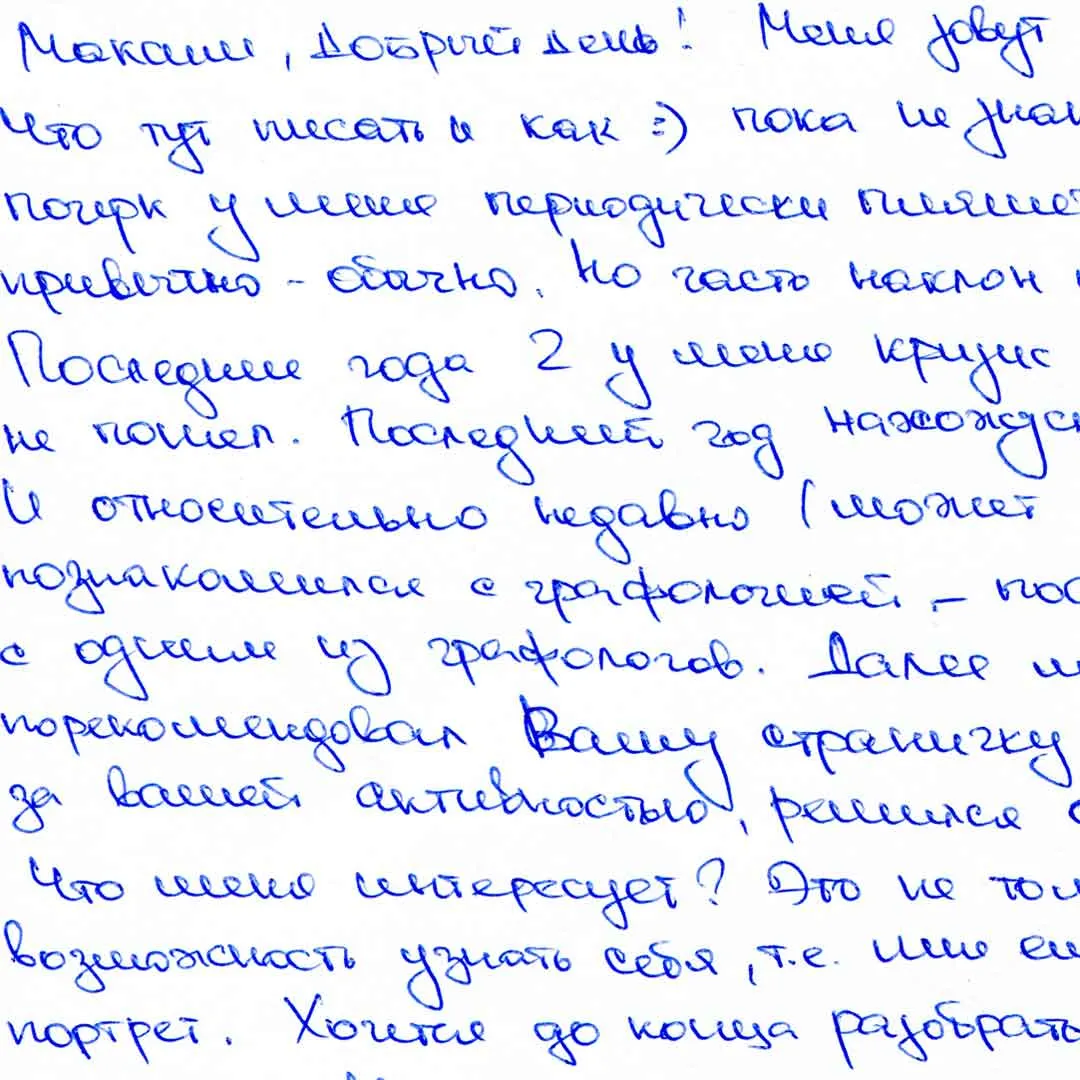 Максим, добрый день! Меня зовут
Что тут писать и как :) пока не знаю
почерк у меня периодически пляшет
привычно - обычно. Но часто наклон
Последние года 2 у меня кризис
не пошел. Последний год нахожусь
И относительно недавно (может
познакомился с графологией, - пос
с одним из графологов. Далее
порекомендовал Вашу страничку
за вашей активностью, решился
Что меня интересует? Это не тол
возможность узнать себя, т.е. или
портрет. Хочется до конца разобрать